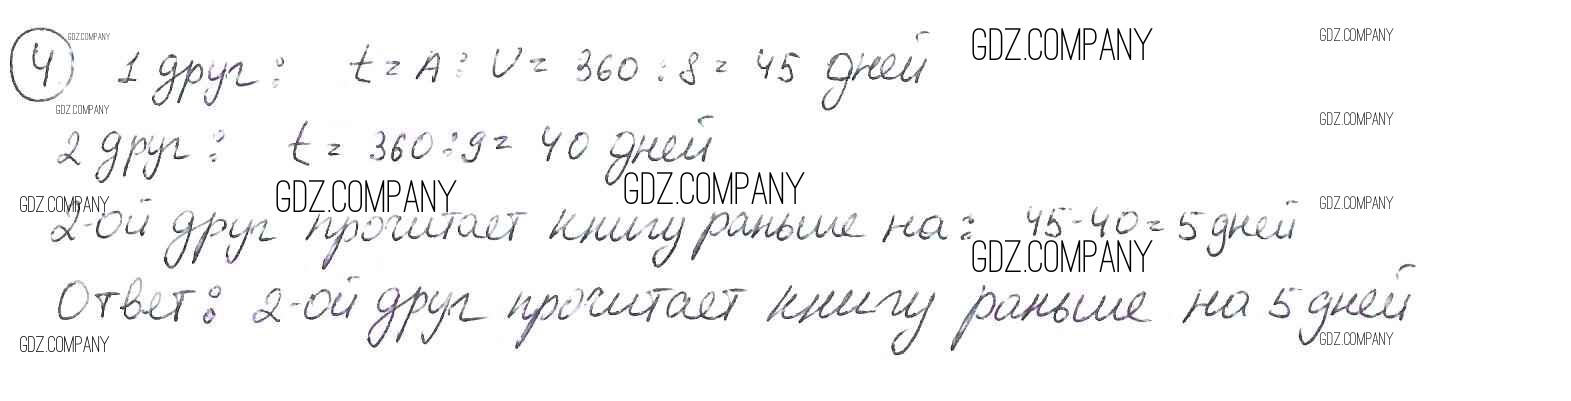 ④ 1 друг: t = A : V = 360 : 8 = 45 дней
2 друг: t = 360 : 9 = 40 дней
2-ой друг прочитает книгу раньше на: 45-40 = 5 дней
Ответ: 2-ой друг прочитает книгу раньше на 5 дней
GDZ.COMPANY
GDZ.COMPANY
GDZ.COMPANY
GDZ.COMPANY
GDZ.COMPANY
GDZ.COMPANY
GDZ.COMPANY
GDZ.COMPANY
GDZ.COMPANY
GDZ.COMPANY
GDZ.COMPANY
GDZ.COMPANY